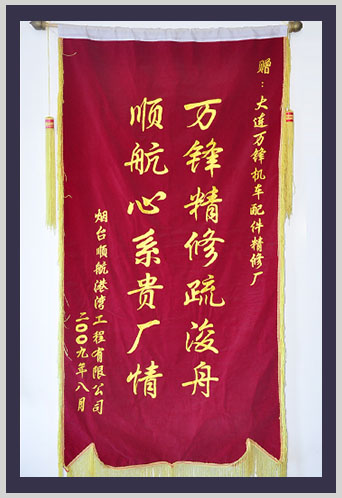 赠：大连万锋机车配件精修厂
万锋精修疏浚舟
顺航心系贵厂情
烟台顺航港湾工程有限公司
二00九年八月